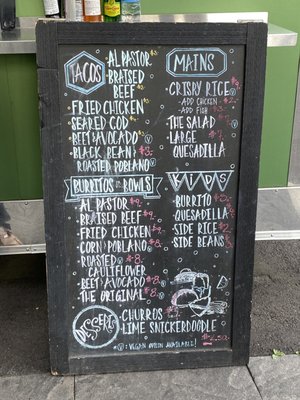 TACOS
AL PASTOR
BRAISED
BEEF
FRIED CHICKEN
SEARED COD
BEET & AVOCADO
BLACK BEAN &
ROASTED POBLANO
BURRITOS OR BOWLS
AL PASTOR $9.
BRAISED BEEF $9.
FRIED CHICKEN $9.
CORN & POBLANO $8.
ROASTED $8.
CAULIFLOWER
BEET & AVOCADO $8.
THE ORIGINAL $8.
DESSERTS
CHURROS
LIME SNICKERDOODLE
V: VEGAN OPTION AVAILABLE!
MAINS
CRISPY RICE
ADD CHICKEN
ADD FISH
THE SALAD
LARGE
QUESADILLA
KIDS
BURRITO
QUESADILLA
SIDE RICE
SIDE BEANS